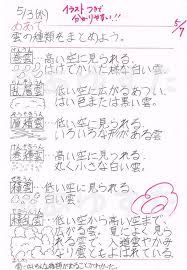 5/13(水)
イラストつきで
分かりやすい!!
5/7
めあて
雲の種類をまとめよう。
巻雲…高い空に見られる、
はけでかいた様な白い雲。
乱層雲…低い空に広がるあつい、
はい色または黒い雲。
積雲…低い空に見られる、
いろいろな形がある雲
高い空に見られる、
丸く小さな白い雲。
…低い空に見られ
る白い雲。
積乱雲…低い空から高い空まで、
広がる雲。夏によく見
られる雲で、入道雲やかみ
なり雲ともよばれている。